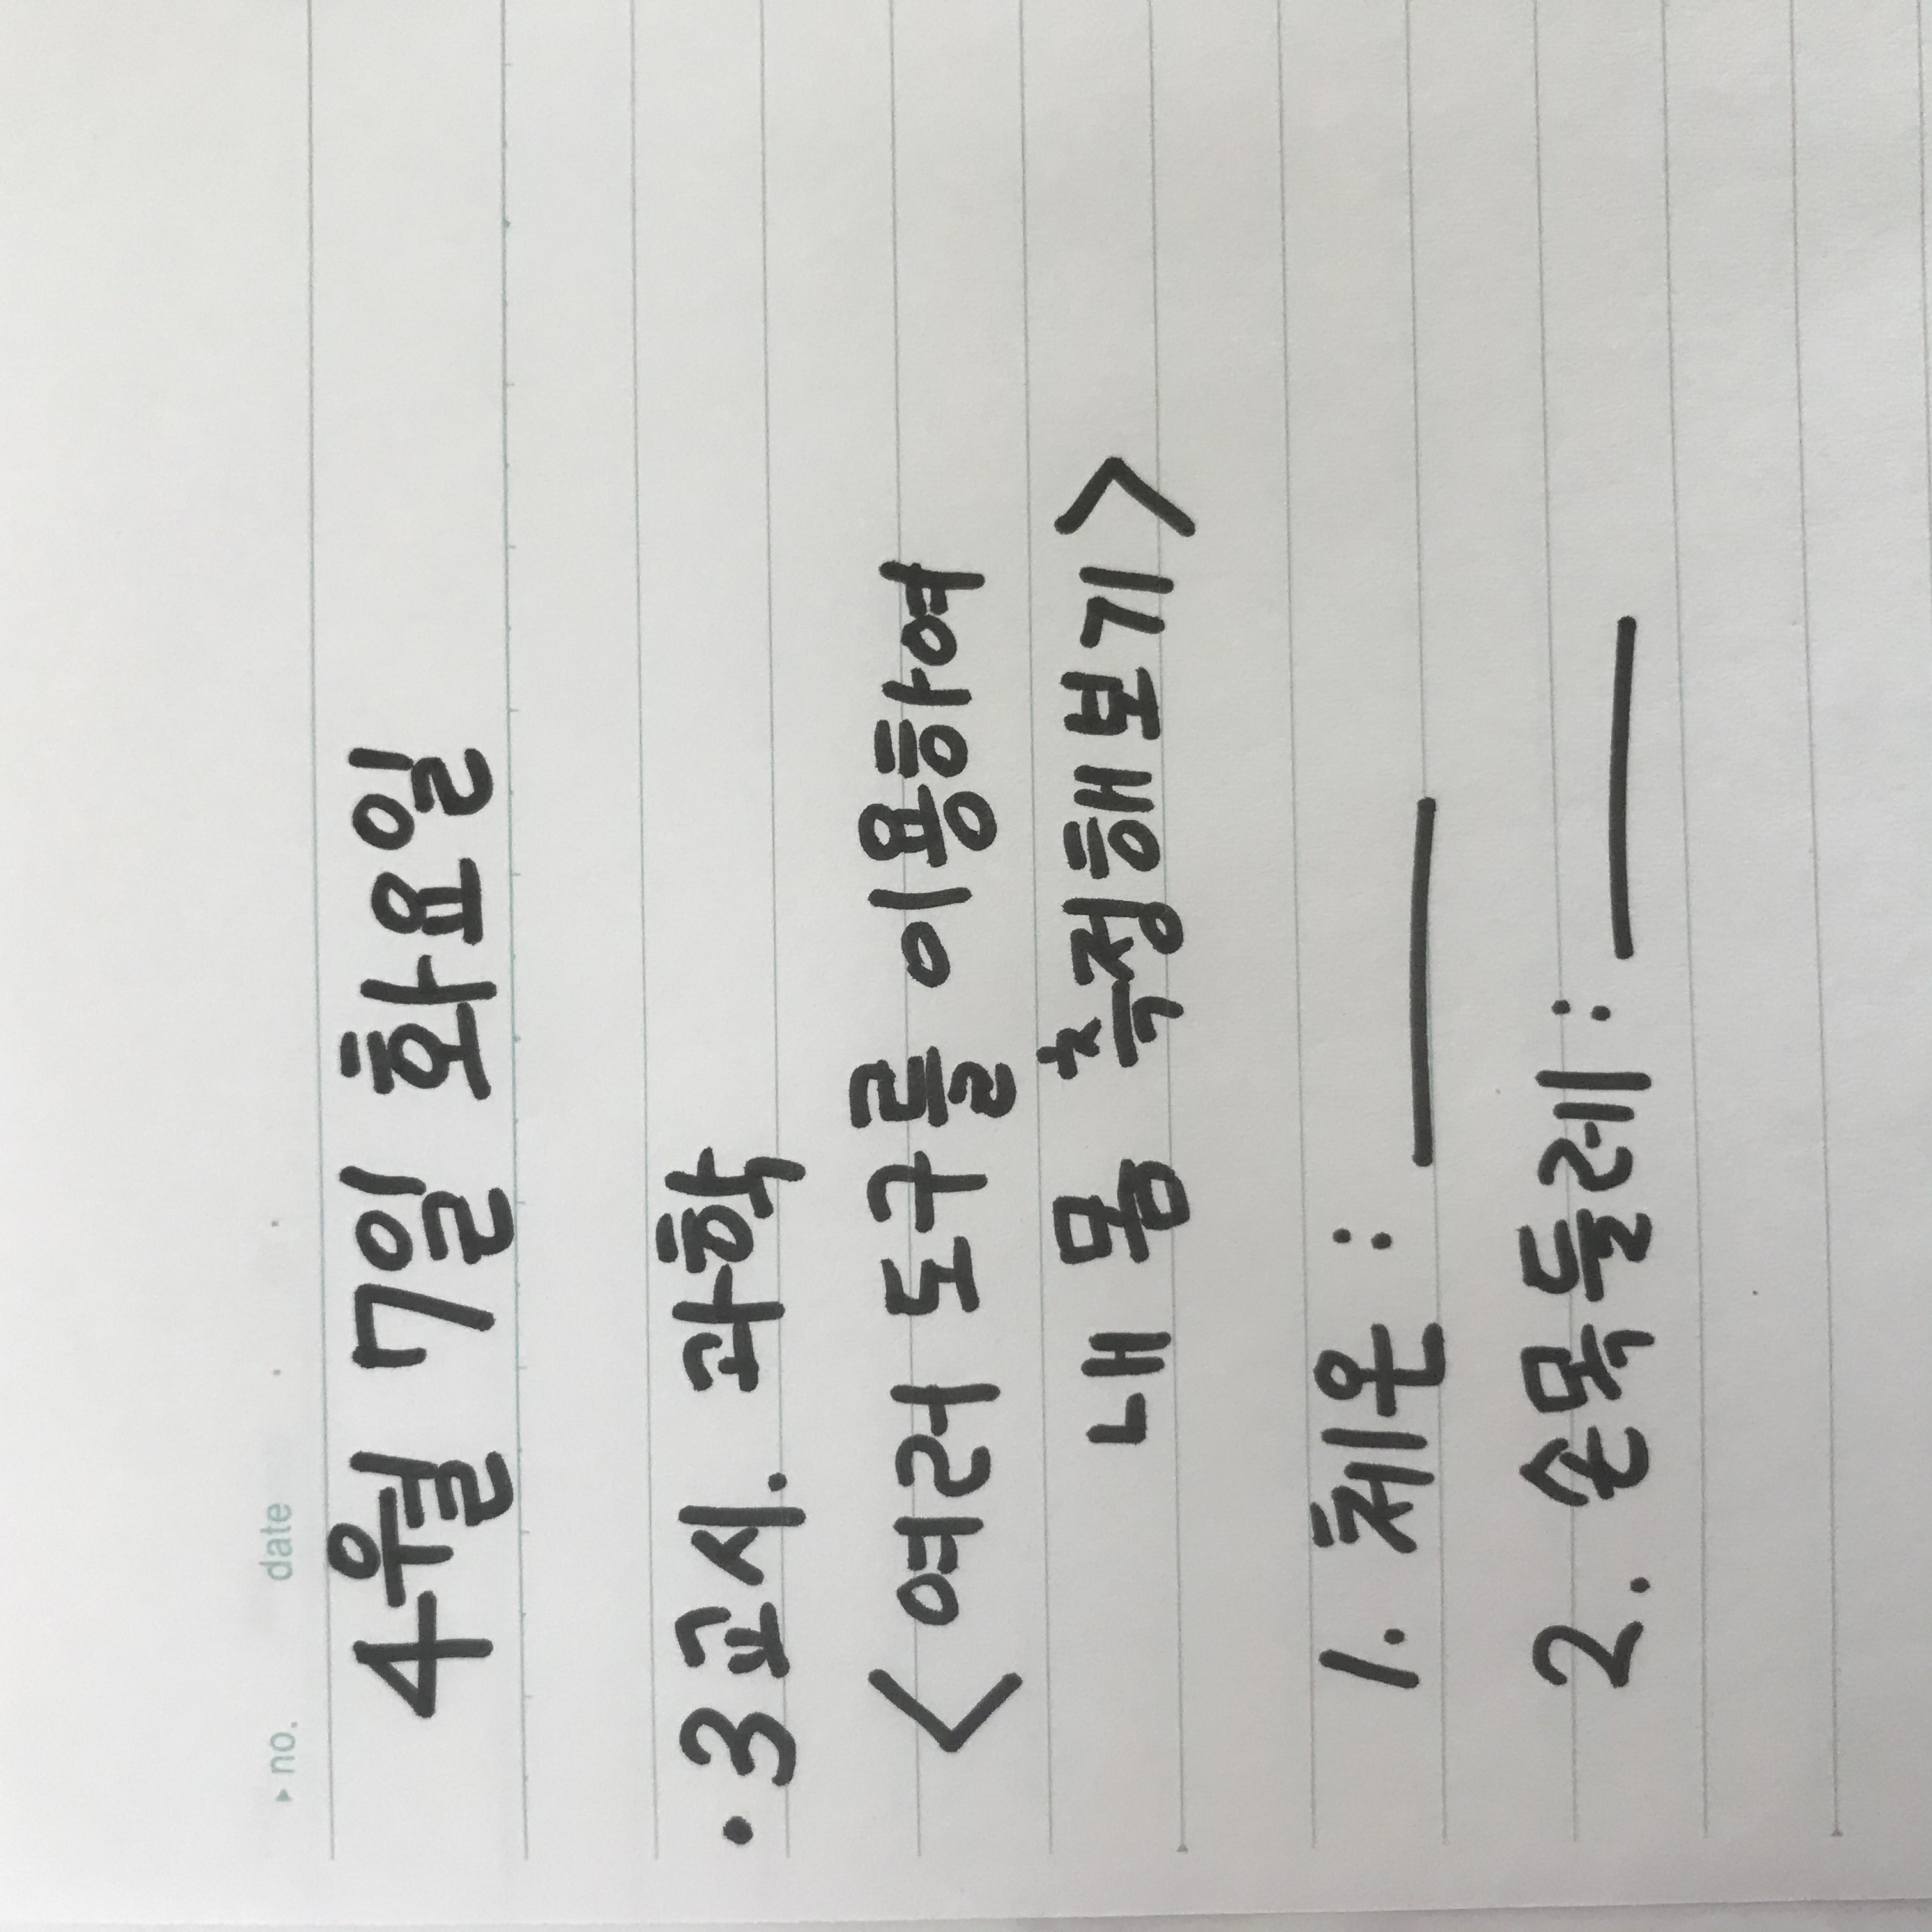 ▸ no. date . .
4월 7일 화요일
· 3교시. 과학
< 여러 도구를 이용하여
내 몸 측정해보기 >
1. 체온 : ______
2. 손목둘레 : ______